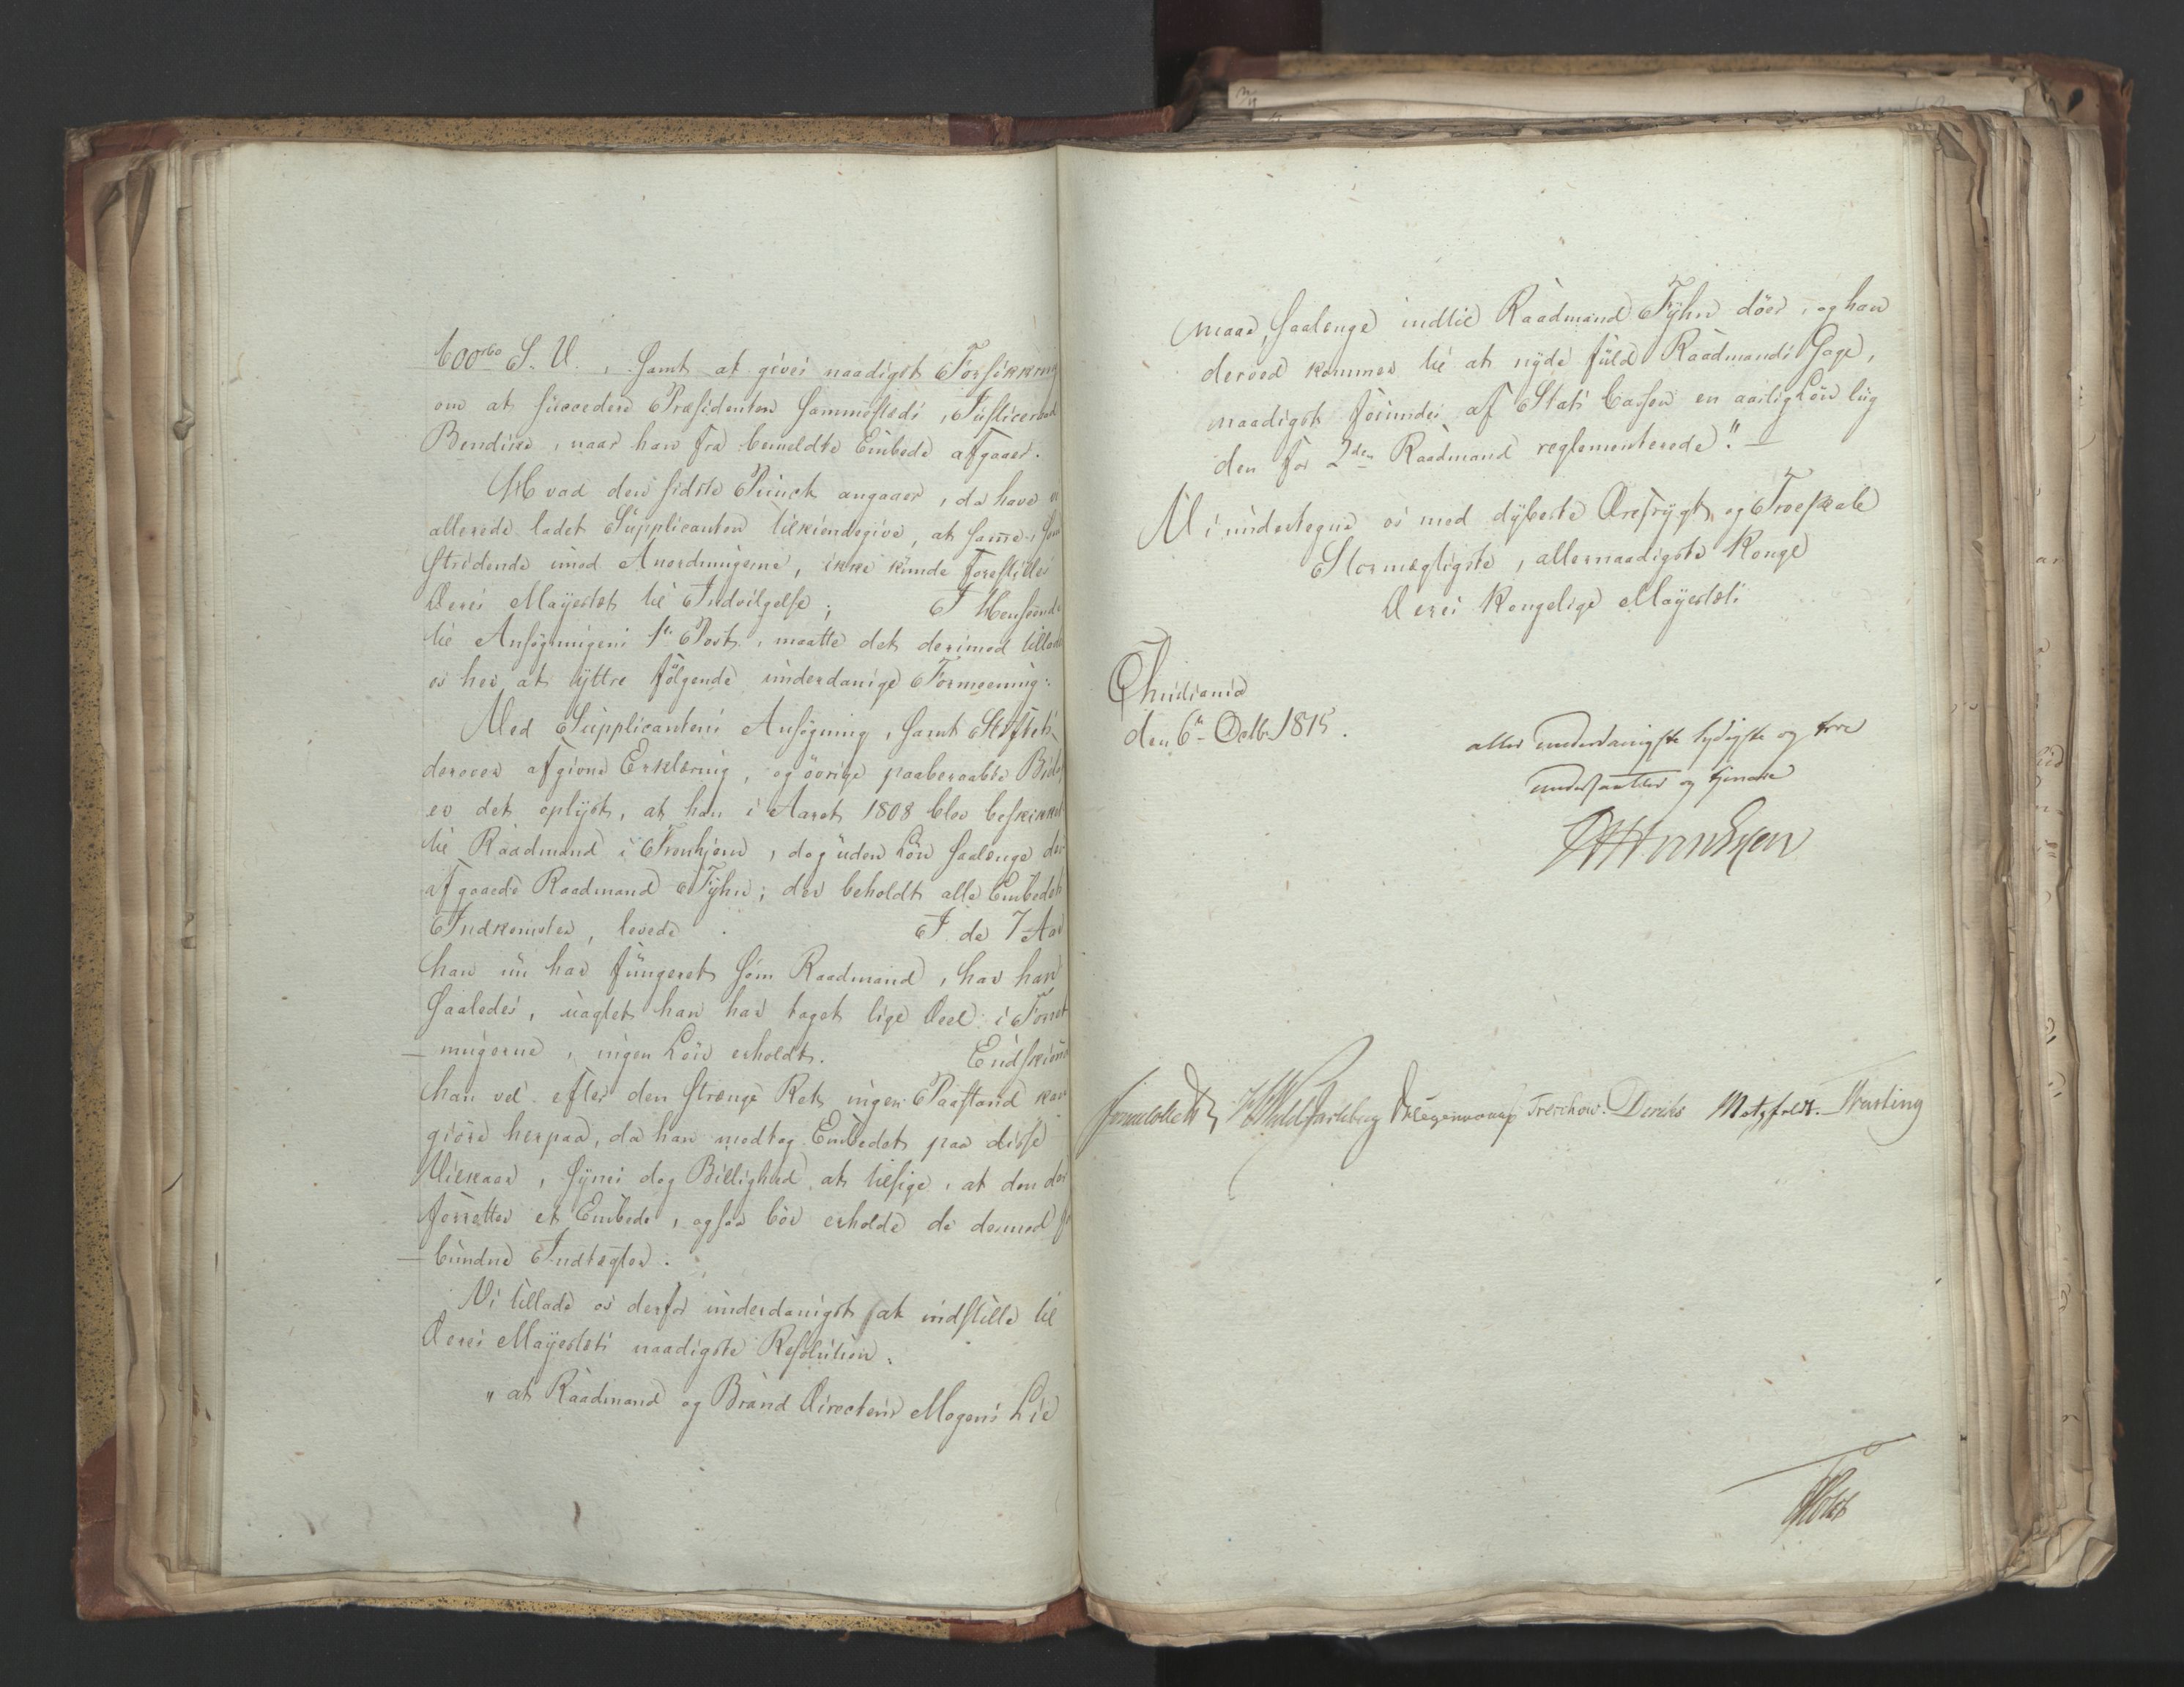 600 rbd S. V., samt at gives naadigst Forsikkring
om at succedere Præsidenten sammesteds, Justiceraad
Bendixe, naar han fra bemeldte Embede afgaaer.
Hvad den sidste Punct angaaer, da have vi
allerede ladet Supplicanten tilkiendegive, at samme, som
stridende imod Anordningerne, ikke kunde forestilles
Deres Mayestæt til Indvilgelse; I Henseende
til Ansøgningens 1ste Post, maatte det derimod tillades
os her at yttre følgende underdanige Formeening:
Med Supplicantens Ansøgning, samt Stiftets
derover afgivne Erklæring, og øvrige paaberaabte Bilage
er det oplyst, at han i Aaret 1808 blev beskikket
til Raadmand i Tronhjem, dog uden Løn saalænge den
afgaaede Raadmand Tyhn; der beholdt alle Embedets
Indkomster, levede. I de 7 Aar
han nu har fungeret som Raadmand, har han
saaledes, uagtet han har taget lige Deel i Forret
-ningerne, ingen Løn erholdt. Endskiønt
han vel efter den strænge Ret, ingen Paastand kan
giøre herpaa, da han modtog Embedet paa disse
Vilkaar, synes dog Billighed at tilsige, at den der
forretter et Embede, ogsaa bør erholde de dermed for
-bundne Indtægter.
Vi tillade os derfor underdanigst at indstille til
Deres Mayestæts naadigste Resolution:
"at Raadmand og Brand Directeur Mogens Lie
maae, saalenge indtil Raadmand Tyhn døer, og han
derved kommer til at nyde fuld Raadmands Gage,
naadigst forundes af Stats Cassen en aarlig Løn liig
den for 2den Raadmand reglementerede." —
Vi undertegne os med dybeste Ærefrygt og Troeskab
Stormægtigste, allernaadigste Konge
Deres Kongelige Mayestæts
Christiania
den 6te Octbr 1815.
aller underdanigste lydigste og troe
undersaatter og tjenere
Sommerhielm Diegenwaap Treschow. Diriks Motzfeldt. Krusting
Holst